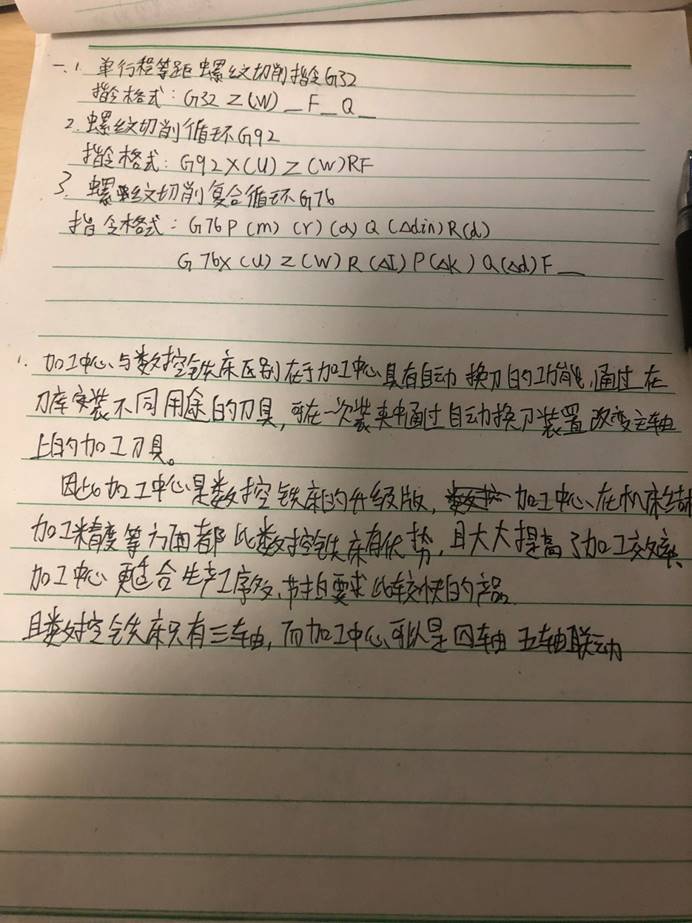 一.1. 单行程等距螺纹切削指令G32
指令格式:G32 Z(W)_F_Q_
2.螺纹切削循环G92
指令格式:G92X(U)Z(W)RF
3. 螺纹切削复合循环G76
指令格式:G76P(m)(r)(α)Q(Δdin)R(d)
G76X(U)Z(W)R(ΔI)P(Δk)Q(Δd)F_
1. 加工中心与数控铣床区别在于加工中心具有自动换刀的功能,通过在
刀库安装不同用途的刀具,可在一次装夹中通过自动换刀装置改变主轴
上的加工刀具。
因此加工中心是数控铣床的升级版,加工中心在机床结构
加工精度等方面都比数控铣床有优势,且大大提高了加工效率.
加工中心更适合生产工序多,节拍要求比较快的产品.
且数控铣床只有三轴,而加工中心可以是四轴 五轴联动